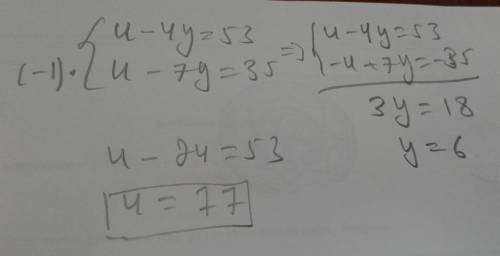 u - 4y = 53 => u - 4y = 53
(-1)· u - 7y = 35 -u + 7y = -35
3y = 18
y = 6
u - 24 = 53
u = 77